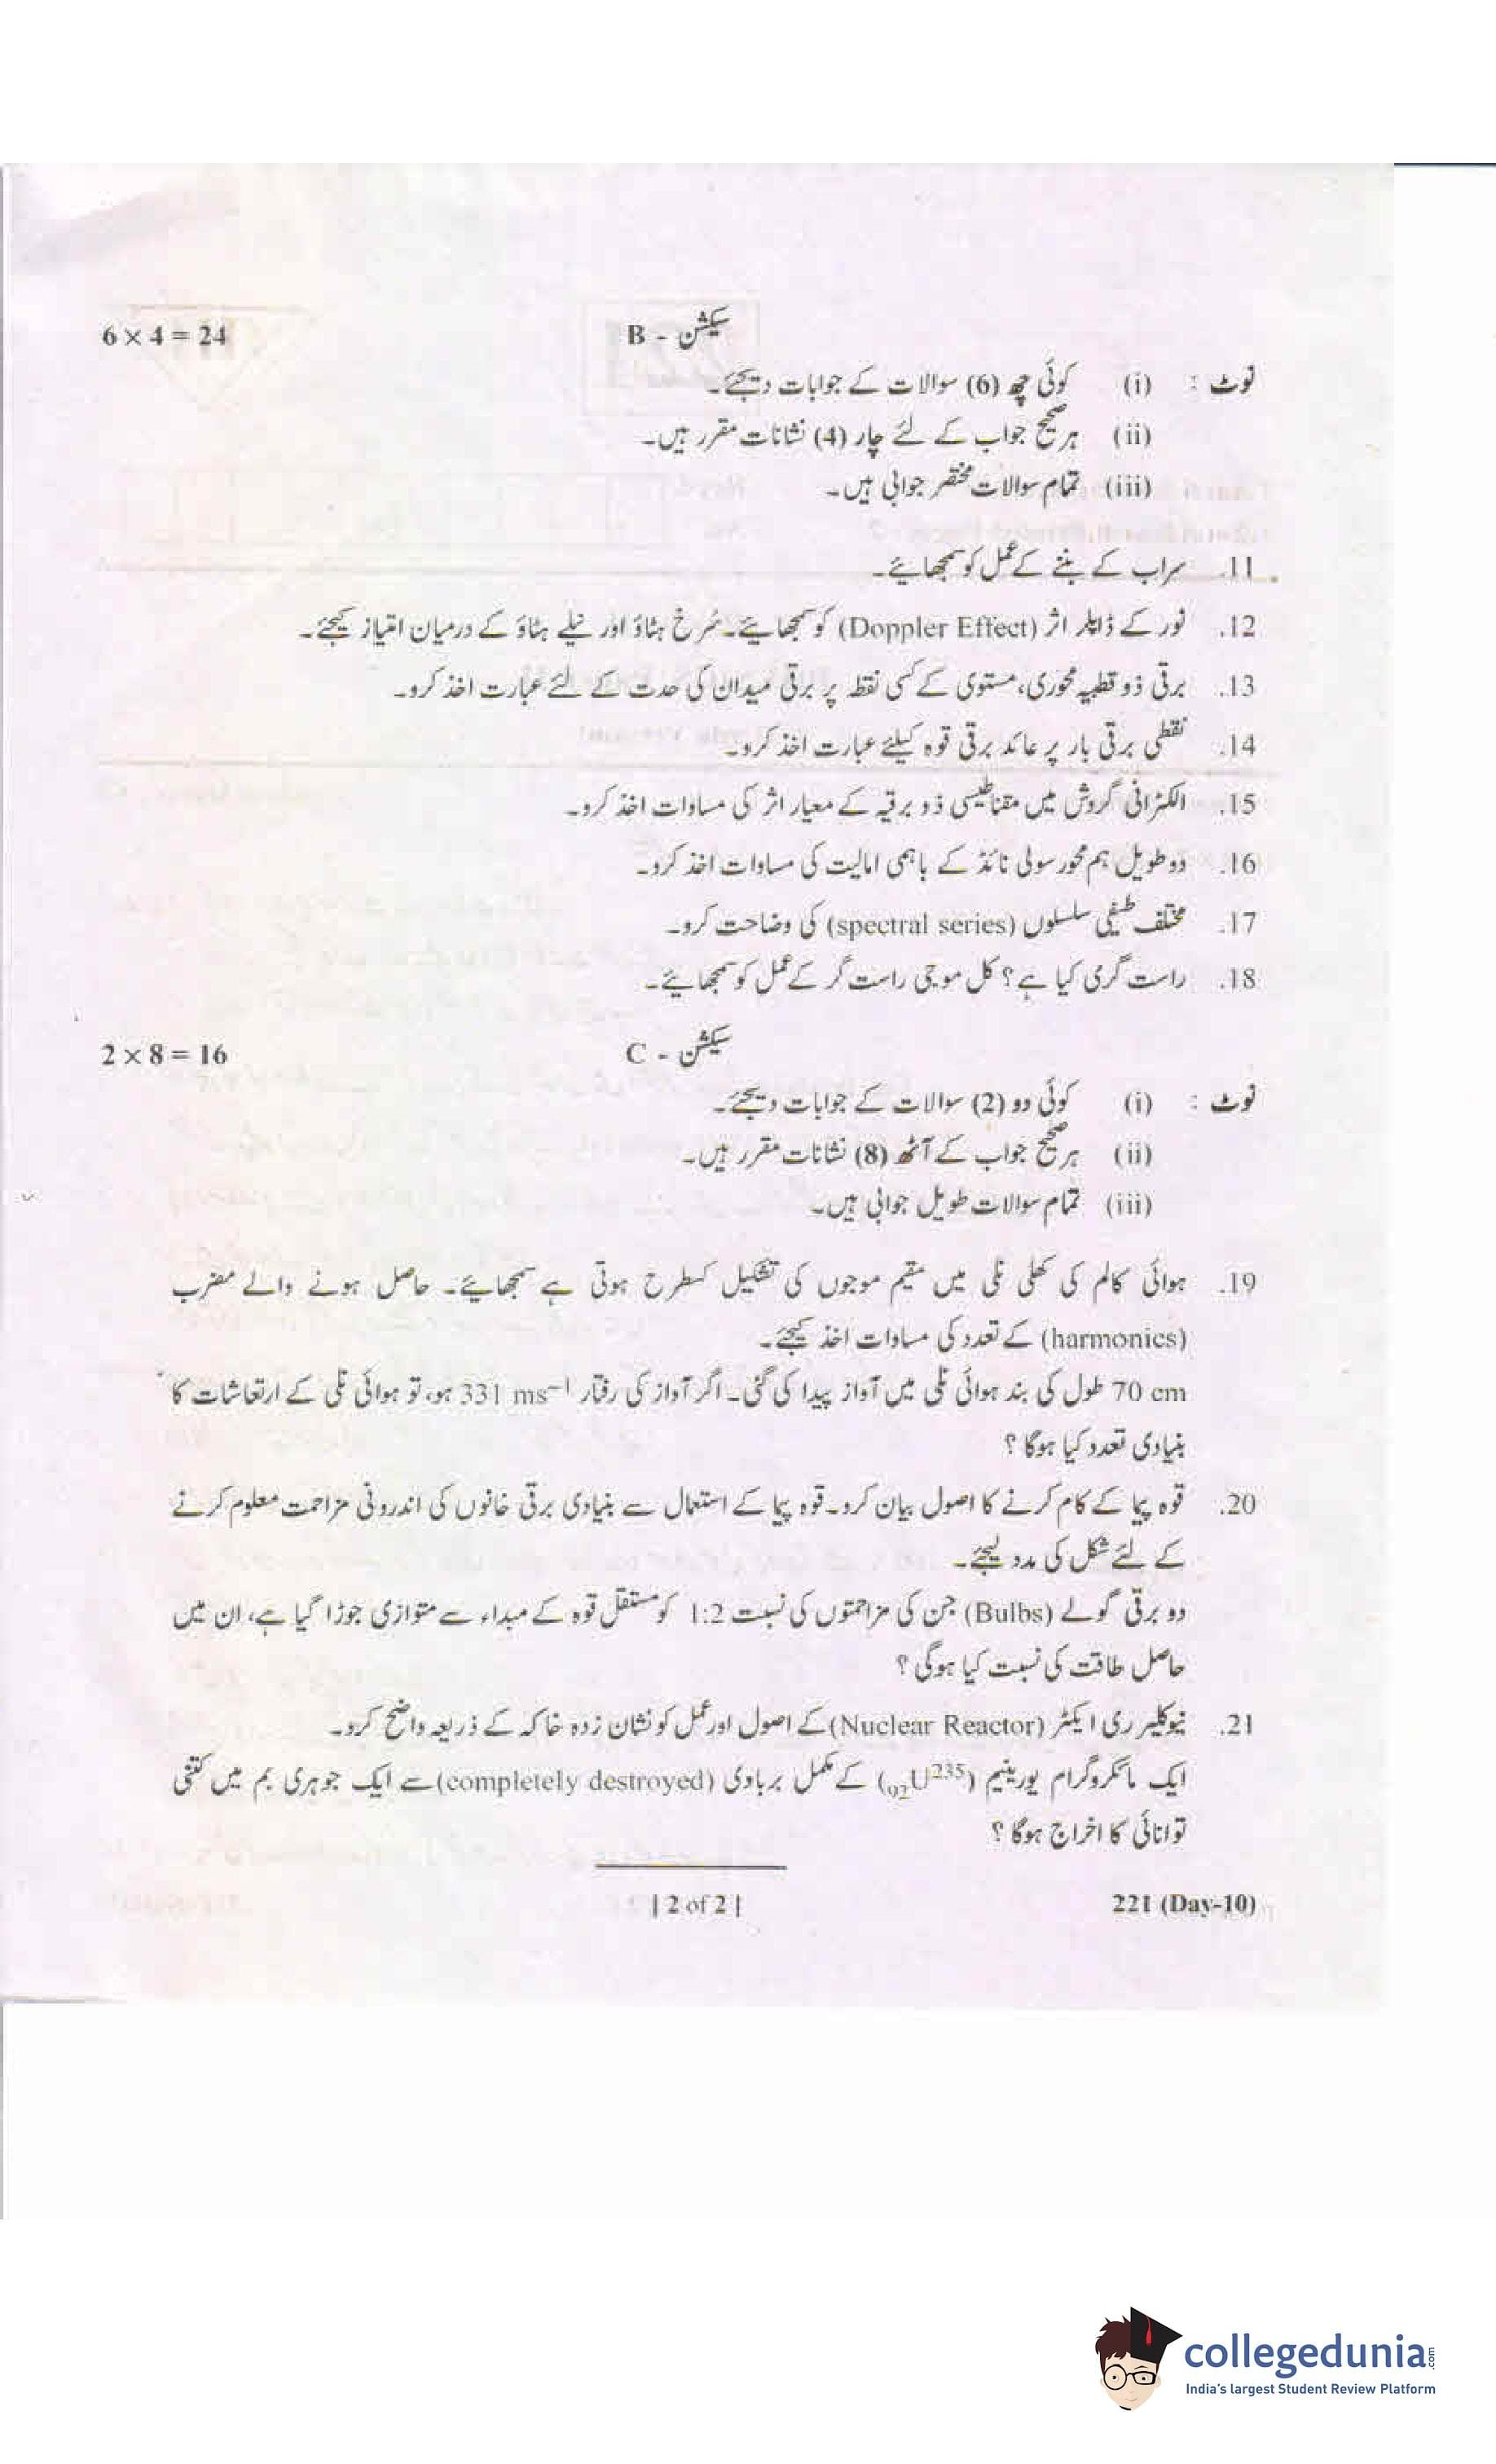 سیکشن - B 6 × 4 = 24
نوٹ : (i) کوئی چھ (6) سوالات کے جوابات دیجئے۔
(ii) ہر صحیح جواب کے لئے چار (4) نشانات مقرر ہیں۔
(iii) تمام سوالات مختصر جوابی ہیں۔
11. سراب کے بننے کے عمل کو سمجھائیے۔
12. نور کے ڈاپلر اثر (Doppler Effect) کو سمجھائیے۔ سُرخ ہٹاؤ اور نیلے ہٹاؤ کے درمیان امتیاز کیجئے۔
13. برقی ذو قطبیہ محوری، مستوی کے کسی نقطہ پر برقی میدان کی حدت کے لئے عبارت اخذ کرو۔
14. نقطی برقی بار پر عائد برقی قوہ کیلئے عبارت اخذ کرو۔
15. الکٹرانی گروش میں مقناطیسی ذو برقیہ کے معیار اثر کی مساوات اخذ کرو۔
16. دو طویل ہم محور سولی نائڈ کے باہمی امالیت کی مساوات اخذ کرو۔
17. مختلف طیفی سلسلوں (spectral series) کی وضاحت کرو۔
18. راست گری کیا ہے؟ کل موجی راست گر کے عمل کو سمجھائیے۔
سیکشن - C 2 × 8 = 16
نوٹ : (i) کوئی دو (2) سوالات کے جوابات دیجئے۔
(ii) ہر صحیح جواب کے آٹھ (8) نشانات مقرر ہیں۔
(iii) تمام سوالات طویل جوابی ہیں۔
19. ہوائی کالم کی کھلی نلی میں مقیم موجوں کی تشکیل کسطرح ہوتی ہے سمجھائیے۔ حاصل ہونے والے مضرب
(harmonics) کے تعدد کی مساوات اخذ کیجئے۔
70 cm طول کی بند ہوائی نلی میں آواز پیدا کی گئی۔ اگر آواز کی رفتار 331 ms⁻¹ ہو، تو ہوائی نلی کے ارتعاشات کا
بنیادی تعدد کیا ہوگا ؟
20. قوہ پیما کے کام کرنے کا اصول بیان کرو۔ قوہ پیما کے استعمال سے بنیادی برقی خانوں کی اندرونی مزاحمت معلوم کرنے
کے لئے شکل کی مدد لیجئے۔
دو برقی گولے (Bulbs) جن کی مزاحمتوں کی نسبت 1:2 کو مستقل قوہ کے مبداء سے متوازی جوڑا گیا ہے، ان میں
حاصل طاقت کی نسبت کیا ہوگی ؟
21. نیوکلیر ری ایکٹر (Nuclear Reactor) کے اصول اور عمل کو نشان زدہ خاکہ کے ذریعہ واضح کرو۔
ایک مائکروگرام یورینیم (₉₂U²³⁵) کے مکمل بربادی (completely destroyed) سے ایک جوہری بم میں کتنی
توانائی کا اخراج ہوگا ؟
221 (Day-10) | 2 of 2 |
collegedunia.com
India's largest Student Review Platform